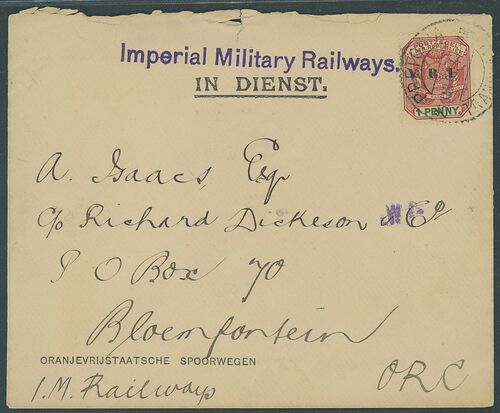 Imperial Military Railways.
IN DIENST.
PRETORIA
V.R.I.
1 PENNY.
A. Isaacs, Esq
c/o Richard Dickeson & Co
P O Box 70
Bloemfontein
ORANJEVRIJSTAATSCHE SPOORWEGEN
I.M. Railways
ORC